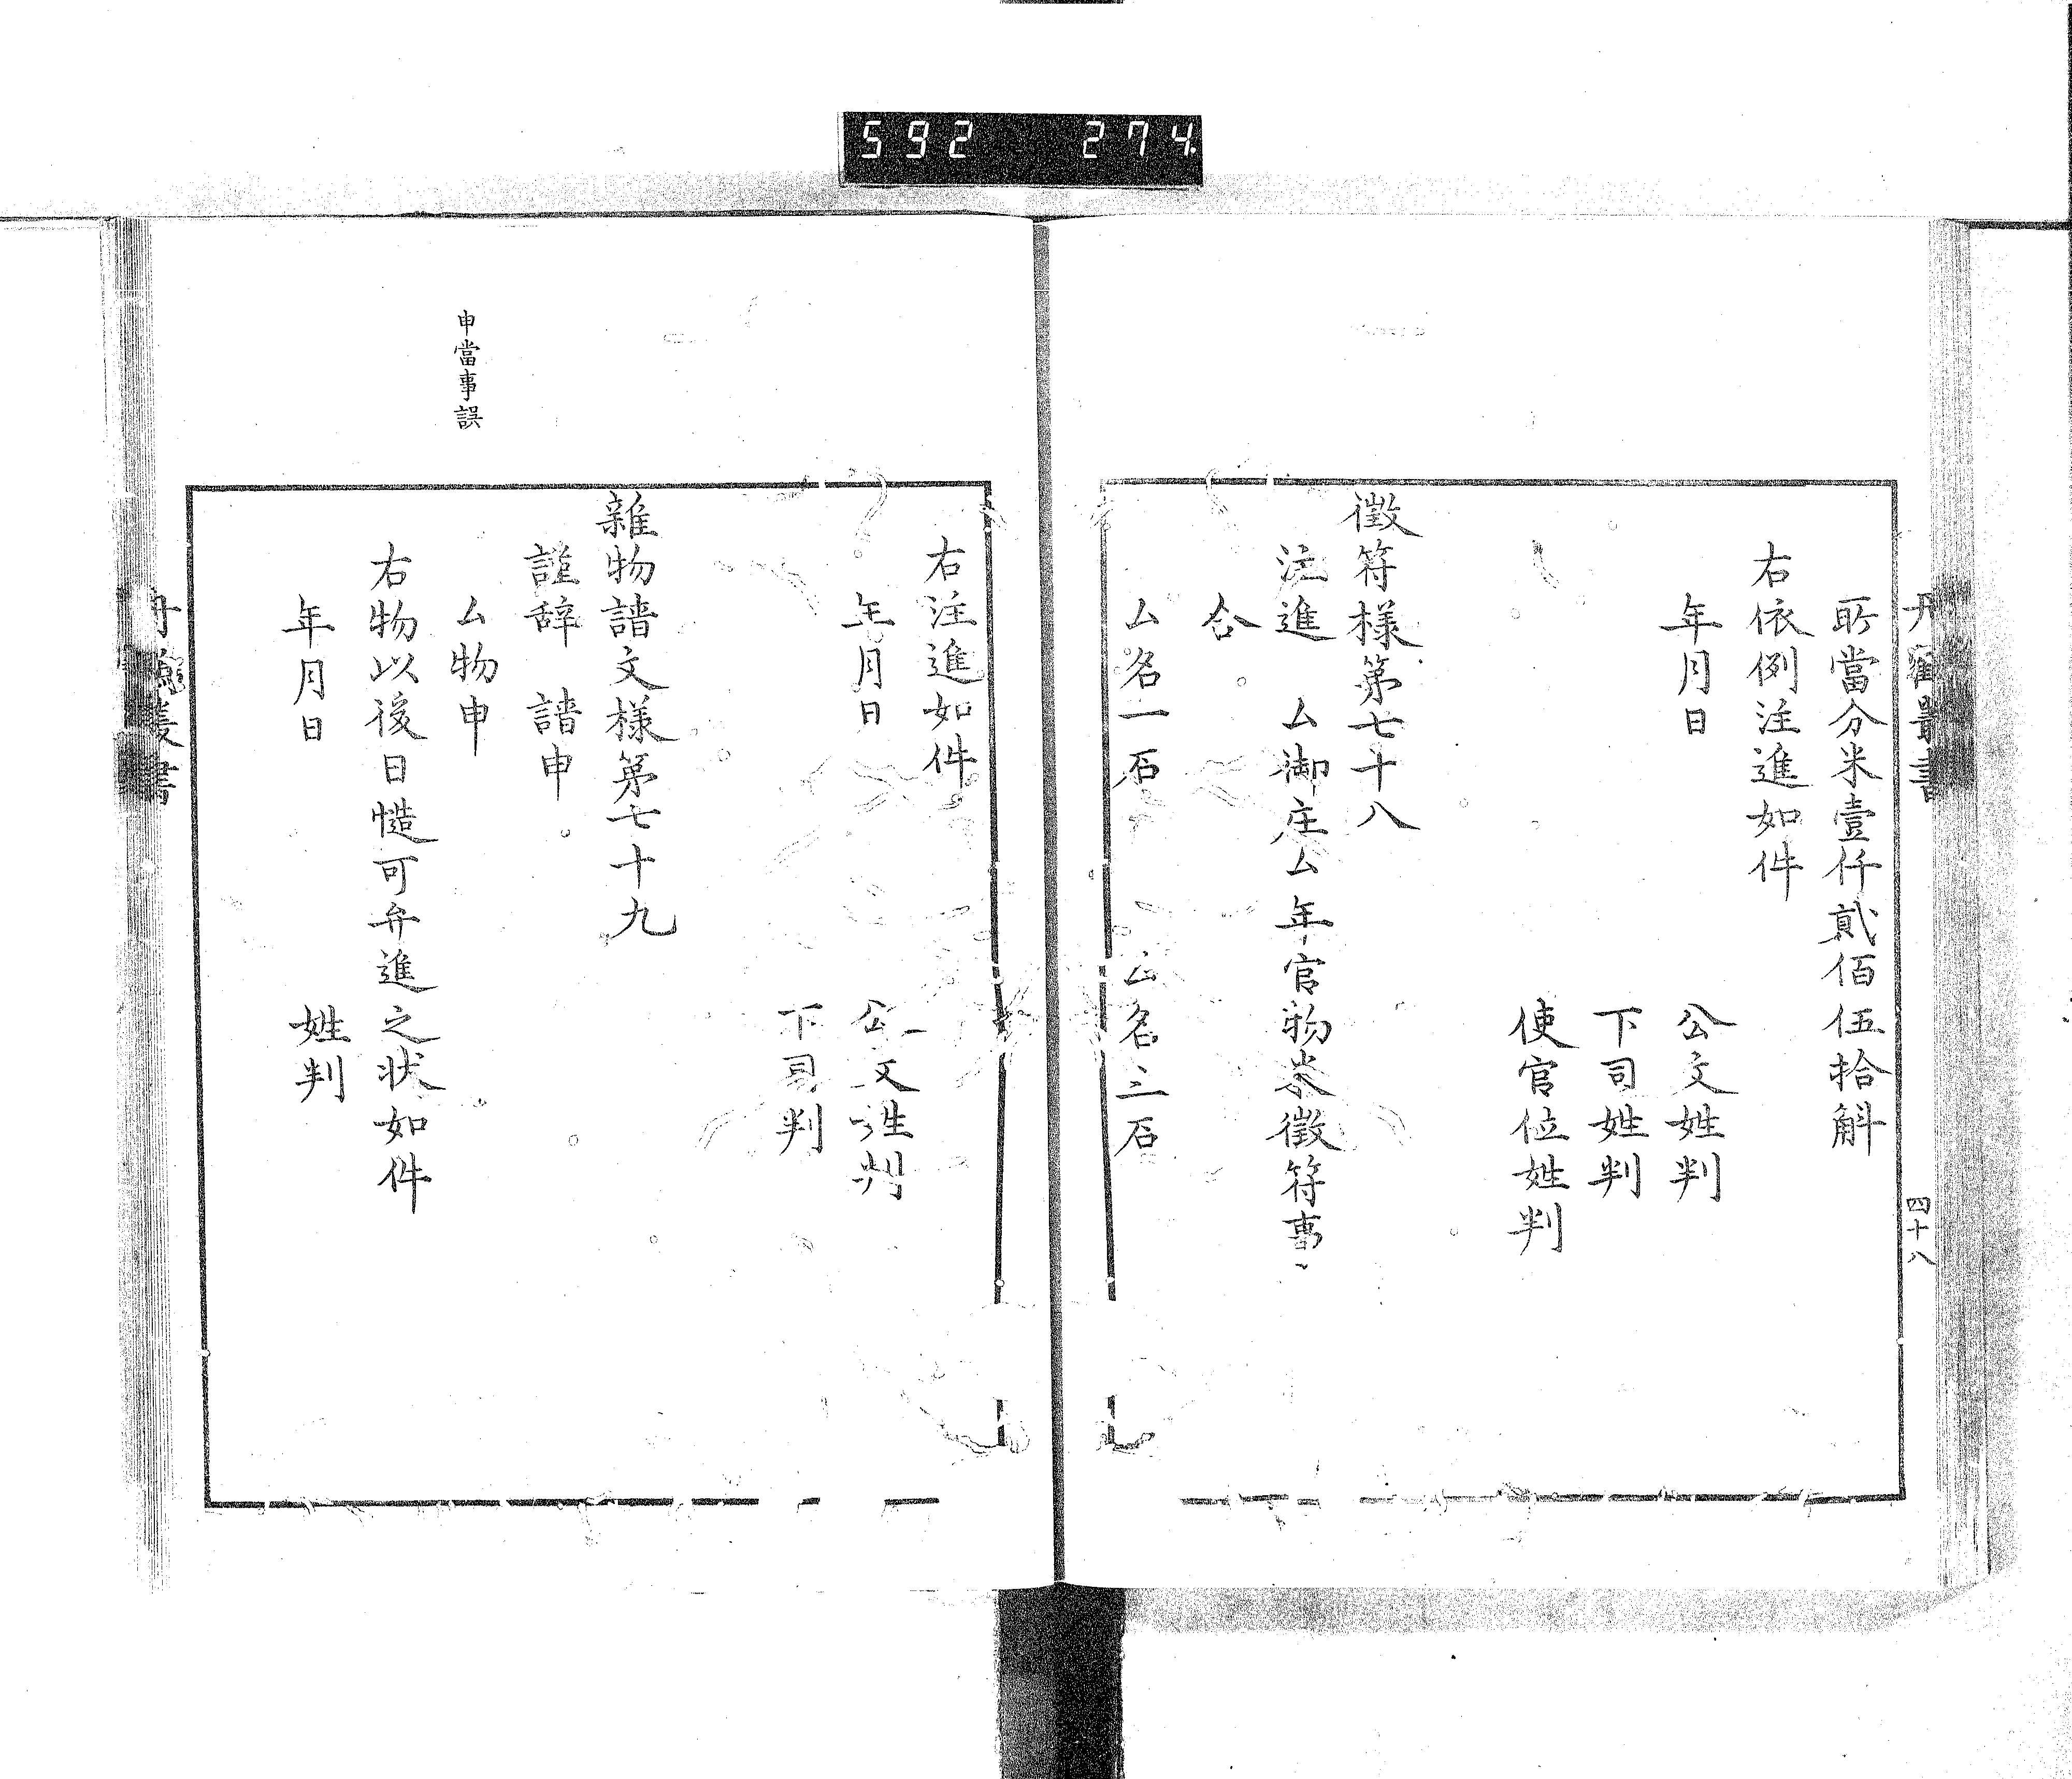 592 274.
丹鶴叢書
四十八
所當分米壹仟貳佰伍拾斛
右依例注進如件
年月日 公文姓判
下司姓判
使官位姓判
徴符様第七十八
注進 ム御庄ム年官物米徴符事
合
ム名一石 ム名三石
右注進如件
年月日 公文姓判
下司判
雑物譜文様第七十九
謹辞 譜申
申當事誤
ム物申
右物以後日慥可弁進之状如件
年月日 姓判
丹鶴叢書